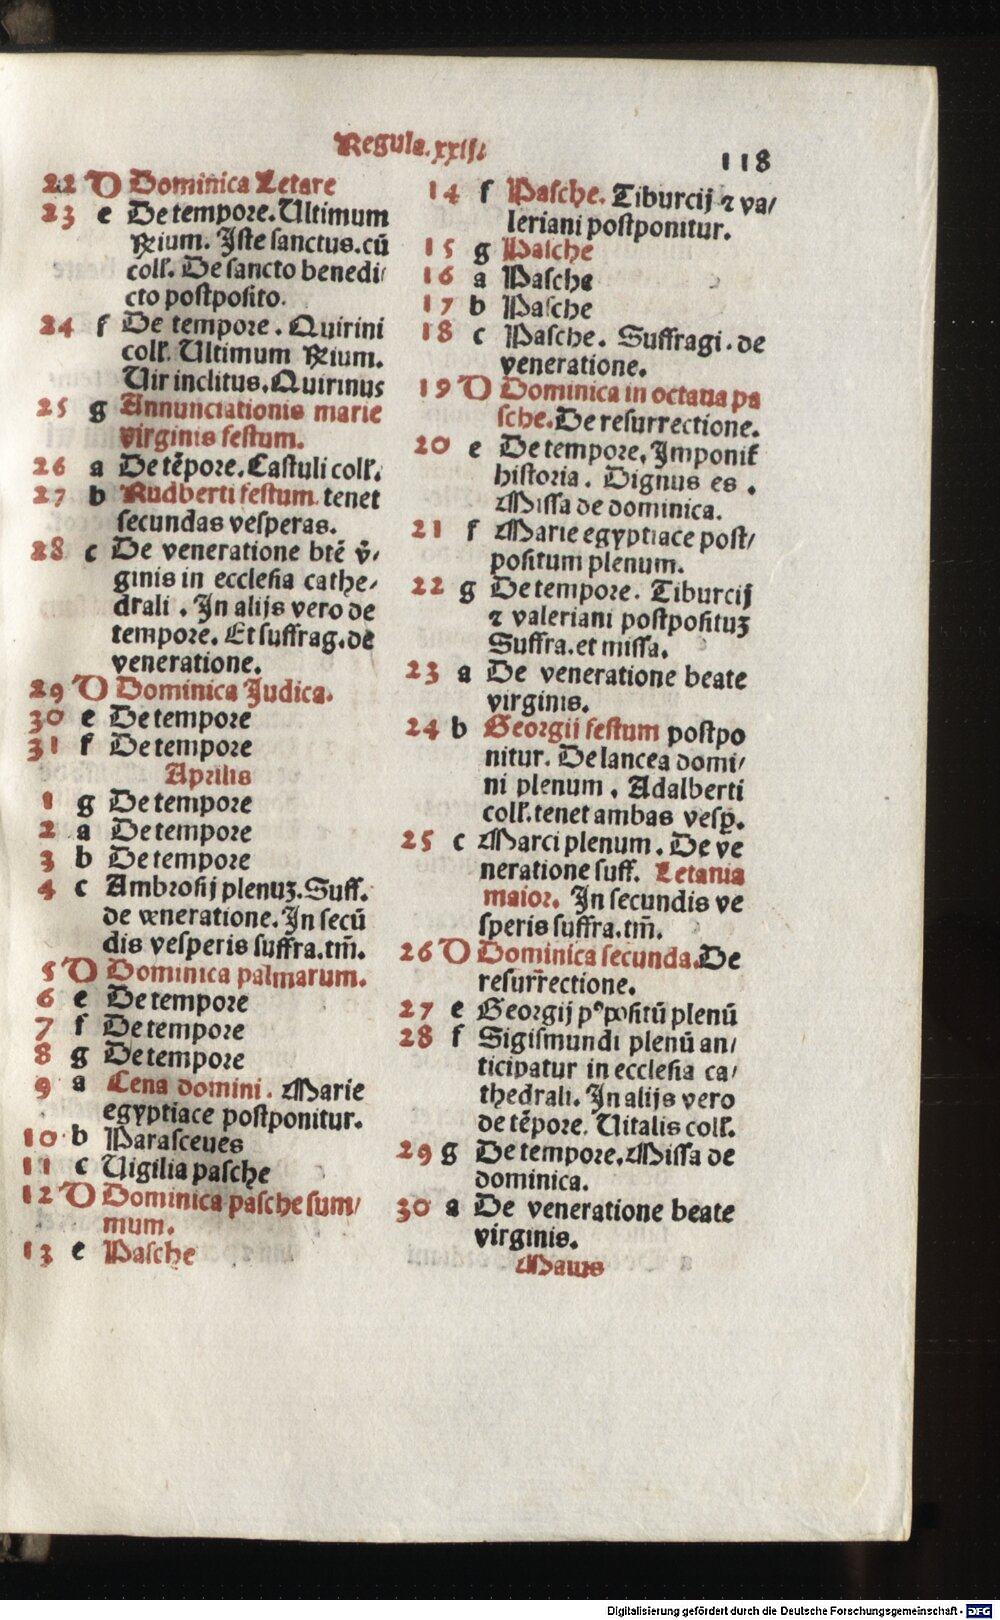 Regula.xxiij.
118
22 D Dominica Letare
23 e De tempore. Ultimum
Rium. Iste sanctus. cū
coll. De sancto benedi/
cto postposito.
24 f De tempore. Quirini
coll. Ultimum Rium.
Uir inclitus. Quirinus
25 g Annunciationis marie
virginis festum.
26 a De tēpore. Castuli coll.
27 b Rudberti festum. tenet
secundas vesperas.
28 c De veneratione btē v̄/
ginis in ecclesia cathe/
drali. In alijs vero de
tempore. Et suffrag. de
veneratione.
29 D Dominica Judica.
30 e De tempore
31 f De tempore
Aprilis
1 g De tempore
2 a De tempore
3 b De tempore
4 c Ambrosij plenuꝫ. Suff.
de veneratione. In secū
dis vesperis suffra. tm̄.
5 D Dominica palmarum.
6 e De tempore
7 f De tempore
8 g De tempore
9 a Cena domini. Marie
egyptiace postponitur.
10 b Parasceues
11 c Uigilia pasche
12 D Dominica pasche sum/
mum.
13 e Pasche
14 f Pasche. Tiburcij ⁊ va/
leriani postponitur.
15 g Pasche
16 a Pasche
17 b Pasche
18 c Pasche. Suffragi. de
veneratione.
19 D Dominica in octaua pa
sche. De resurrectione.
20 e De tempore, Imponit̄
historia. Dignus es.
Missa de dominica.
21 f Marie egyptiace post/
positum plenum.
22 g De tempore. Tiburcij
⁊ valeriani postposituꝫ
Suffra. et missa.
23 a De veneratione beate
virginis.
24 b Georgii festum postpo
nitur. De lancea domi/
ni plenum. Adalberti
coll. tenet ambas vesp̄.
25 c Marci plenum. De ve
neratione suff. Letania
maior. In secundis ve
speris suffra. tm̄.
26 D Dominica secunda. De
resurrectione.
27 e Georgij pᵒpositū plenū
28 f Sigismundi plenū an/
ticipatur in ecclesia ca/
thedrali. In alijs vero
de tēpore. Uitalis coll.
29 g De tempore, Missa de
dominica.
30 a De veneratione beate
virginis.
Maius
Digitalisierung gefördert durch die Deutsche Forschungsgemeinschaft - DFG